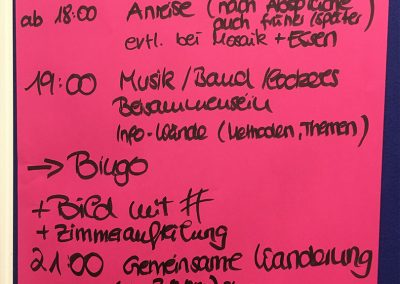 ab 18:00 Anreise (nach Absprache
auch früher/später)
evtl. bei Mosaik + Essen
19:00 Musik/Band/lockeres
Beisammensein
Info-Wände (Methoden, Themen)
→ Bingo
+ Bild mit #
+ Zimmeraufteilung
21:00 Gemeinsame Wanderung